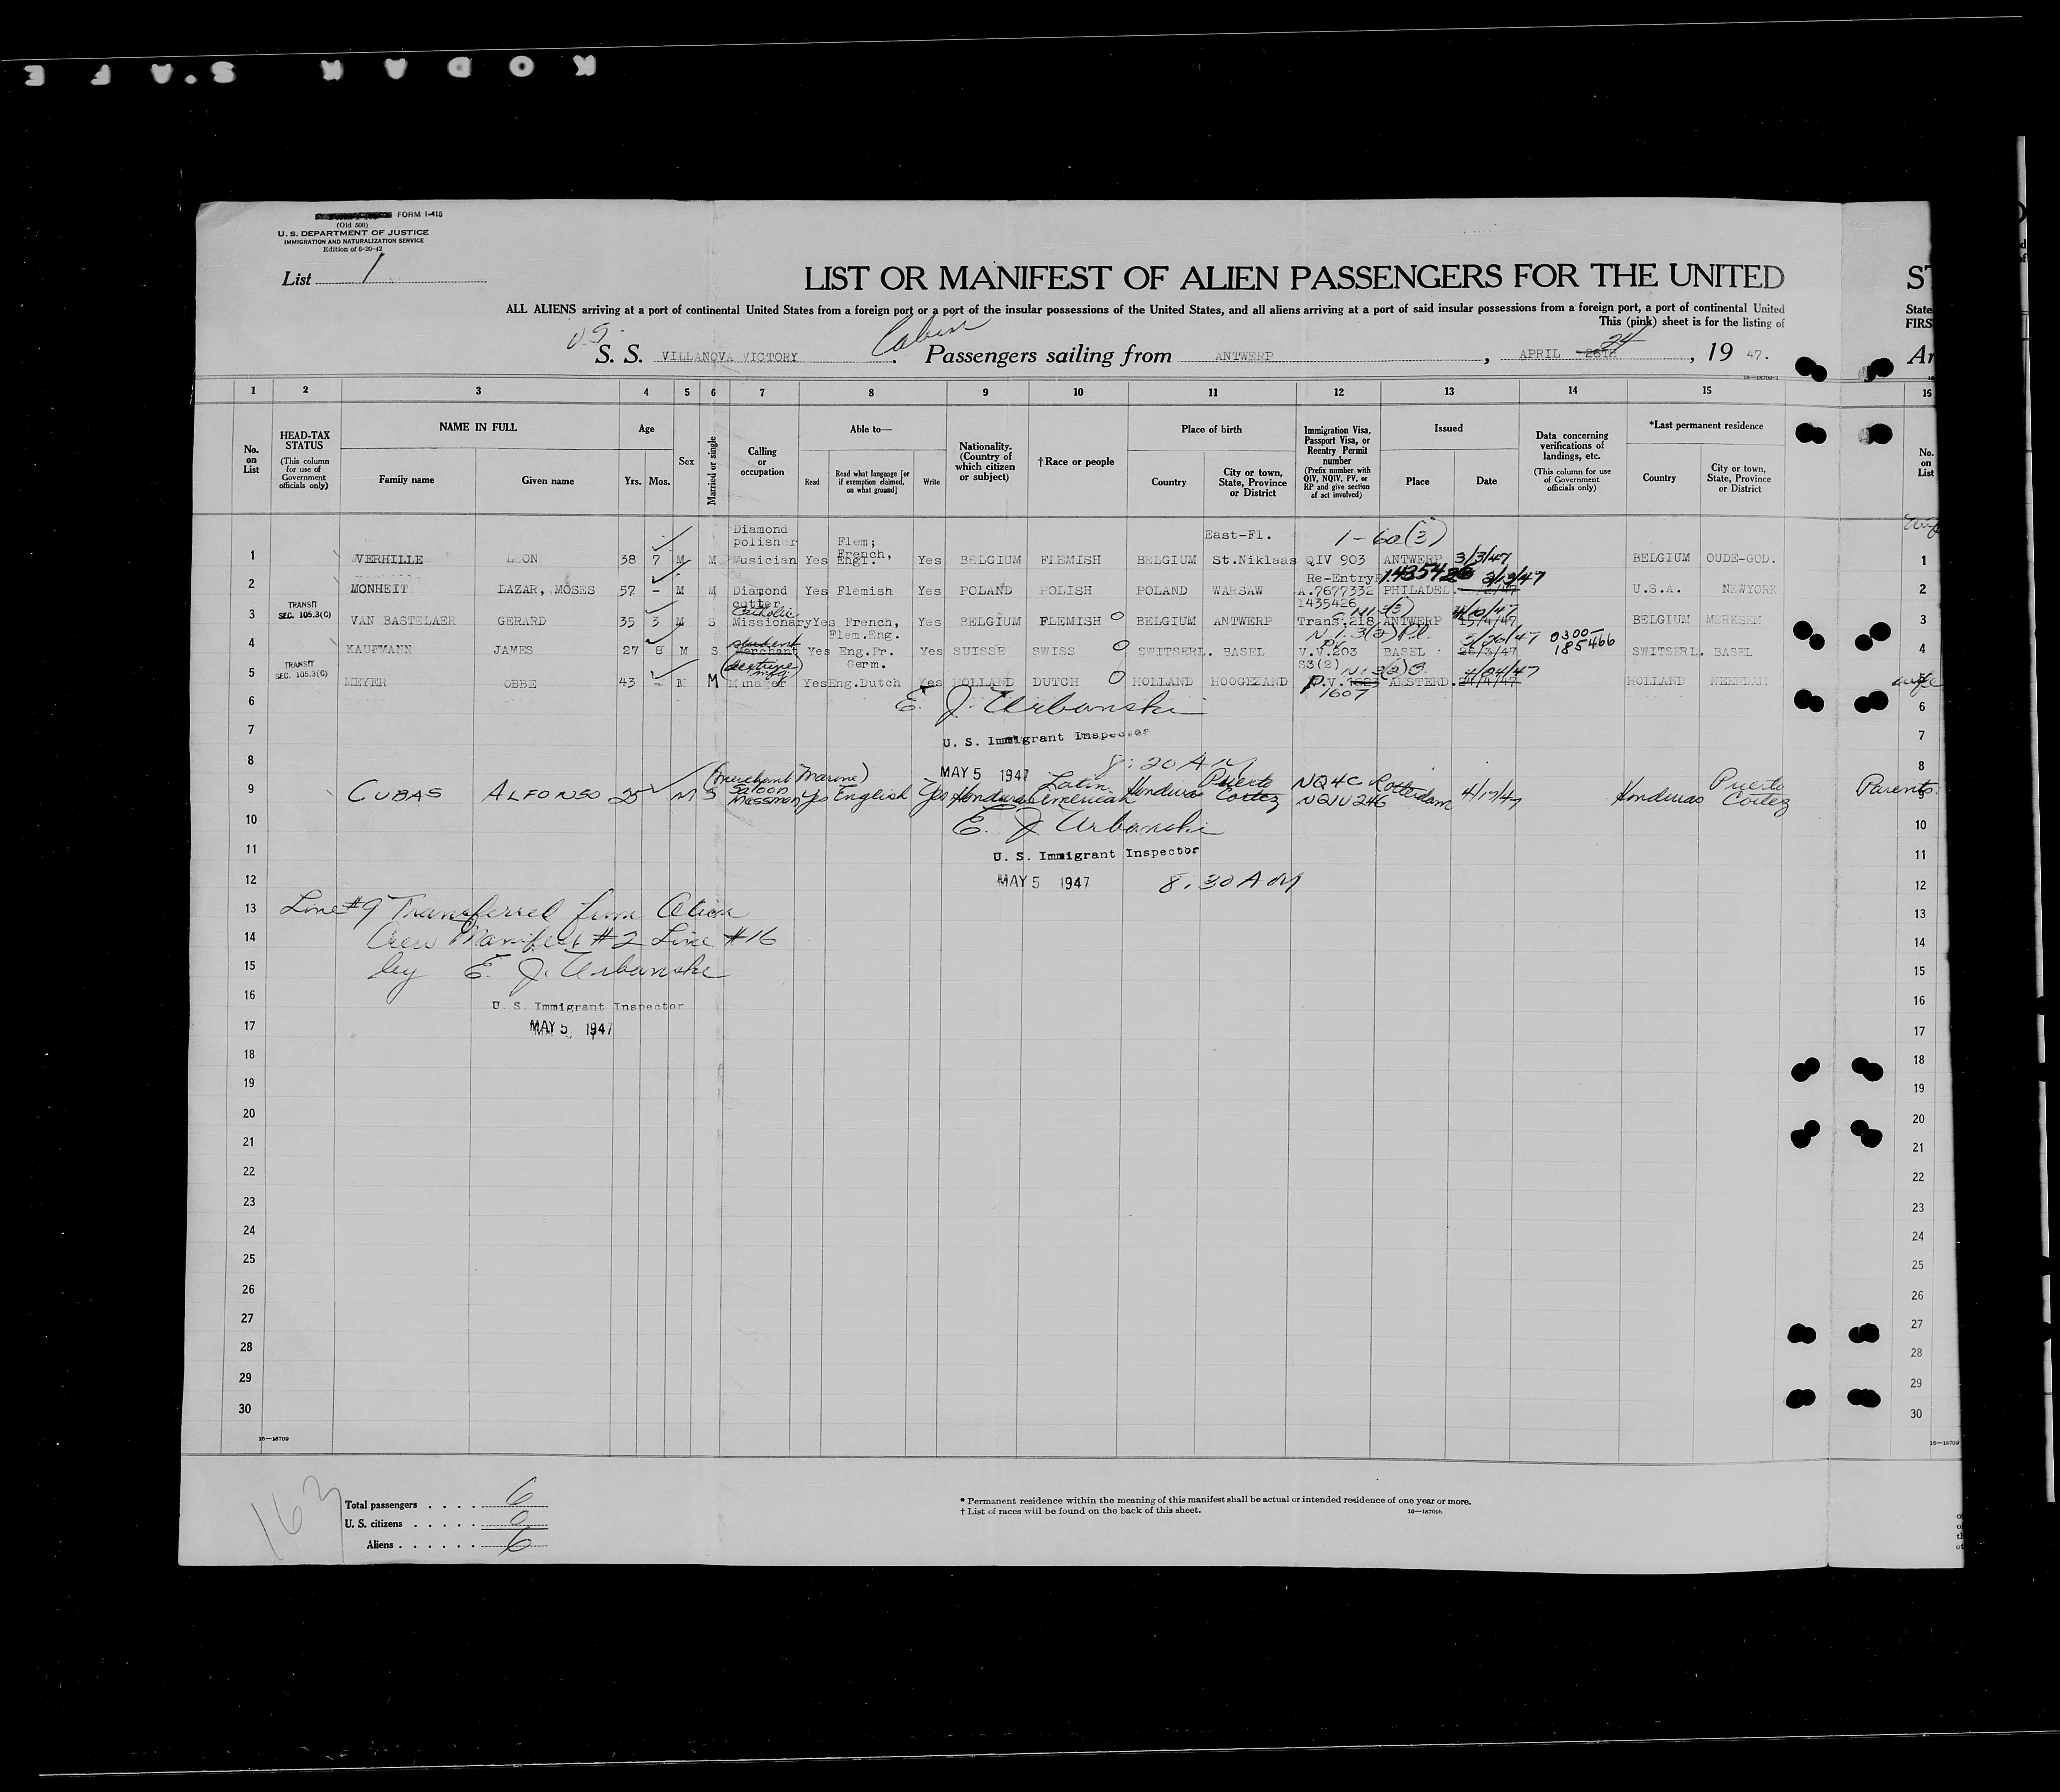 KODAK S'AFE
FORM I-415
(Old 500)
U. S. DEPARTMENT OF JUSTICE
IMMIGRATION AND NATURALIZATION SERVICE
Edition of 6-20-42
List 1
LIST OR MANIFEST OF ALIEN PASSENGERS FOR THE UNITED ST
ALL ALIENS arriving at a port of continental United States from a foreign port or a port of the insular possessions of the United States, and all aliens arriving at a port of said insular possessions from a foreign port, a port of continental United State
This (pink) sheet is for the listing of FIRS
U.S. Cabin
S. S. VILLANOVA VICTORY Passengers sailing from ANTWERP, APRIL 26th 24, 19 47. Ar
1 2 3 4 5 6 7 8 9 10 11 12 13 14 15 16
No. on List
HEAD-TAX STATUS
(This column for use of Government officials only)
NAME IN FULL
Family name Given name
Age
Yrs. Mos.
Sex
Married or single
Calling or occupation
Able to—
Read Read what language [or if exemption claimed, on what ground] Write
Nationality. (Country of which citizen or subject)
†Race or people
Place of birth
Country City or town, State, Province or District
Immigration Visa, Passport Visa, or Reentry Permit number
(Prefix number with QIV, NQIV, PV, or RP and give section of act involved)
Issued
Place Date
Data concerning verifications of landings, etc.
(This column for use of Government officials only)
*Last permanent residence
Country City or town, State, Province or District
No. on List
Diamond polisher Flem; French, East-Fl. 1-6a(3)
1 VERHILLE LEON 38 7 M M Musician Yes Engl. Yes BELGIUM FLEMISH BELGIUM St.Niklaas QIV 903 ANTWERP 3/3/47 BELGIUM OUDE-GOD. 1
Re-Entry 1435426 3/13/47
2 MONHEIT LAZAR, MOSES 57 - M M Diamond cutter Yes Flemish Yes POLAND POLISH POLAND WARSAW A.7677332 PHILADEL. U.S.A. NEWYORK 2
1435426
TRANSIT
SEC. 105.3(C)
Catholic
3 VAN BASTELAER GERARD 35 3 M S Missionary Yes French, Flem.Eng. Yes BELGIUM FLEMISH O BELGIUM ANTWERP Trans.218 ANTWERP 15/4/47 BELGIUM MERKSEM 3
student
4 KAUFMANN JAMES 27 8 M S Merchant Yes Eng.Fr. Germ. Yes SUISSE SWISS O SWITSERL. BASEL V.V.203 BASEL 26/3/47 0300-185466 SWITSERL. BASEL 4
S3(2)
TRANSIT
SEC. 105.3(C)
5 MEYER OBBE 43 - M M Manager Yes Eng.Dutch Yes HOLLAND DUTCH O HOLLAND HOOGEZAND P.V. 1607 AMSTERD. HOLLAND VEENDAM wife
6 E. J. Urbanski 6
7 U. S. Immigrant Inspector 7
8 MAY 5 1947 8:20 AM 8
(merchant marine)
9 CUBAS ALFONSO 25 M S Saloon Messman Yes English Yes Honduras Latin American Honduras Puerto Cortez NQ4C NQIV 246 Rotterdam 4/17/47 Honduras Puerto Cortez Parents 9
10 E. J. Urbanski 10
11 U. S. Immigrant Inspector 11
12 MAY 5 1947 8:30 AM 12
13 Line #9 Transferred from Alien 13
14 Crew Manifest #2 Line #16 14
15 by E. J. Urbanski 15
16 U. S. Immigrant Inspector 16
17 MAY 5 1947 17
18 18
19 19
20 20
21 21
22 22
23 23
24 24
25 25
26 26
27 27
28 28
29 29
30 30
16—18709 16—18709
163
Total passengers 6
U. S. citizens 0
Aliens 6
* Permanent residence within the meaning of this manifest shall be actual or intended residence of one year or more.
† List of races will be found on the back of this sheet.